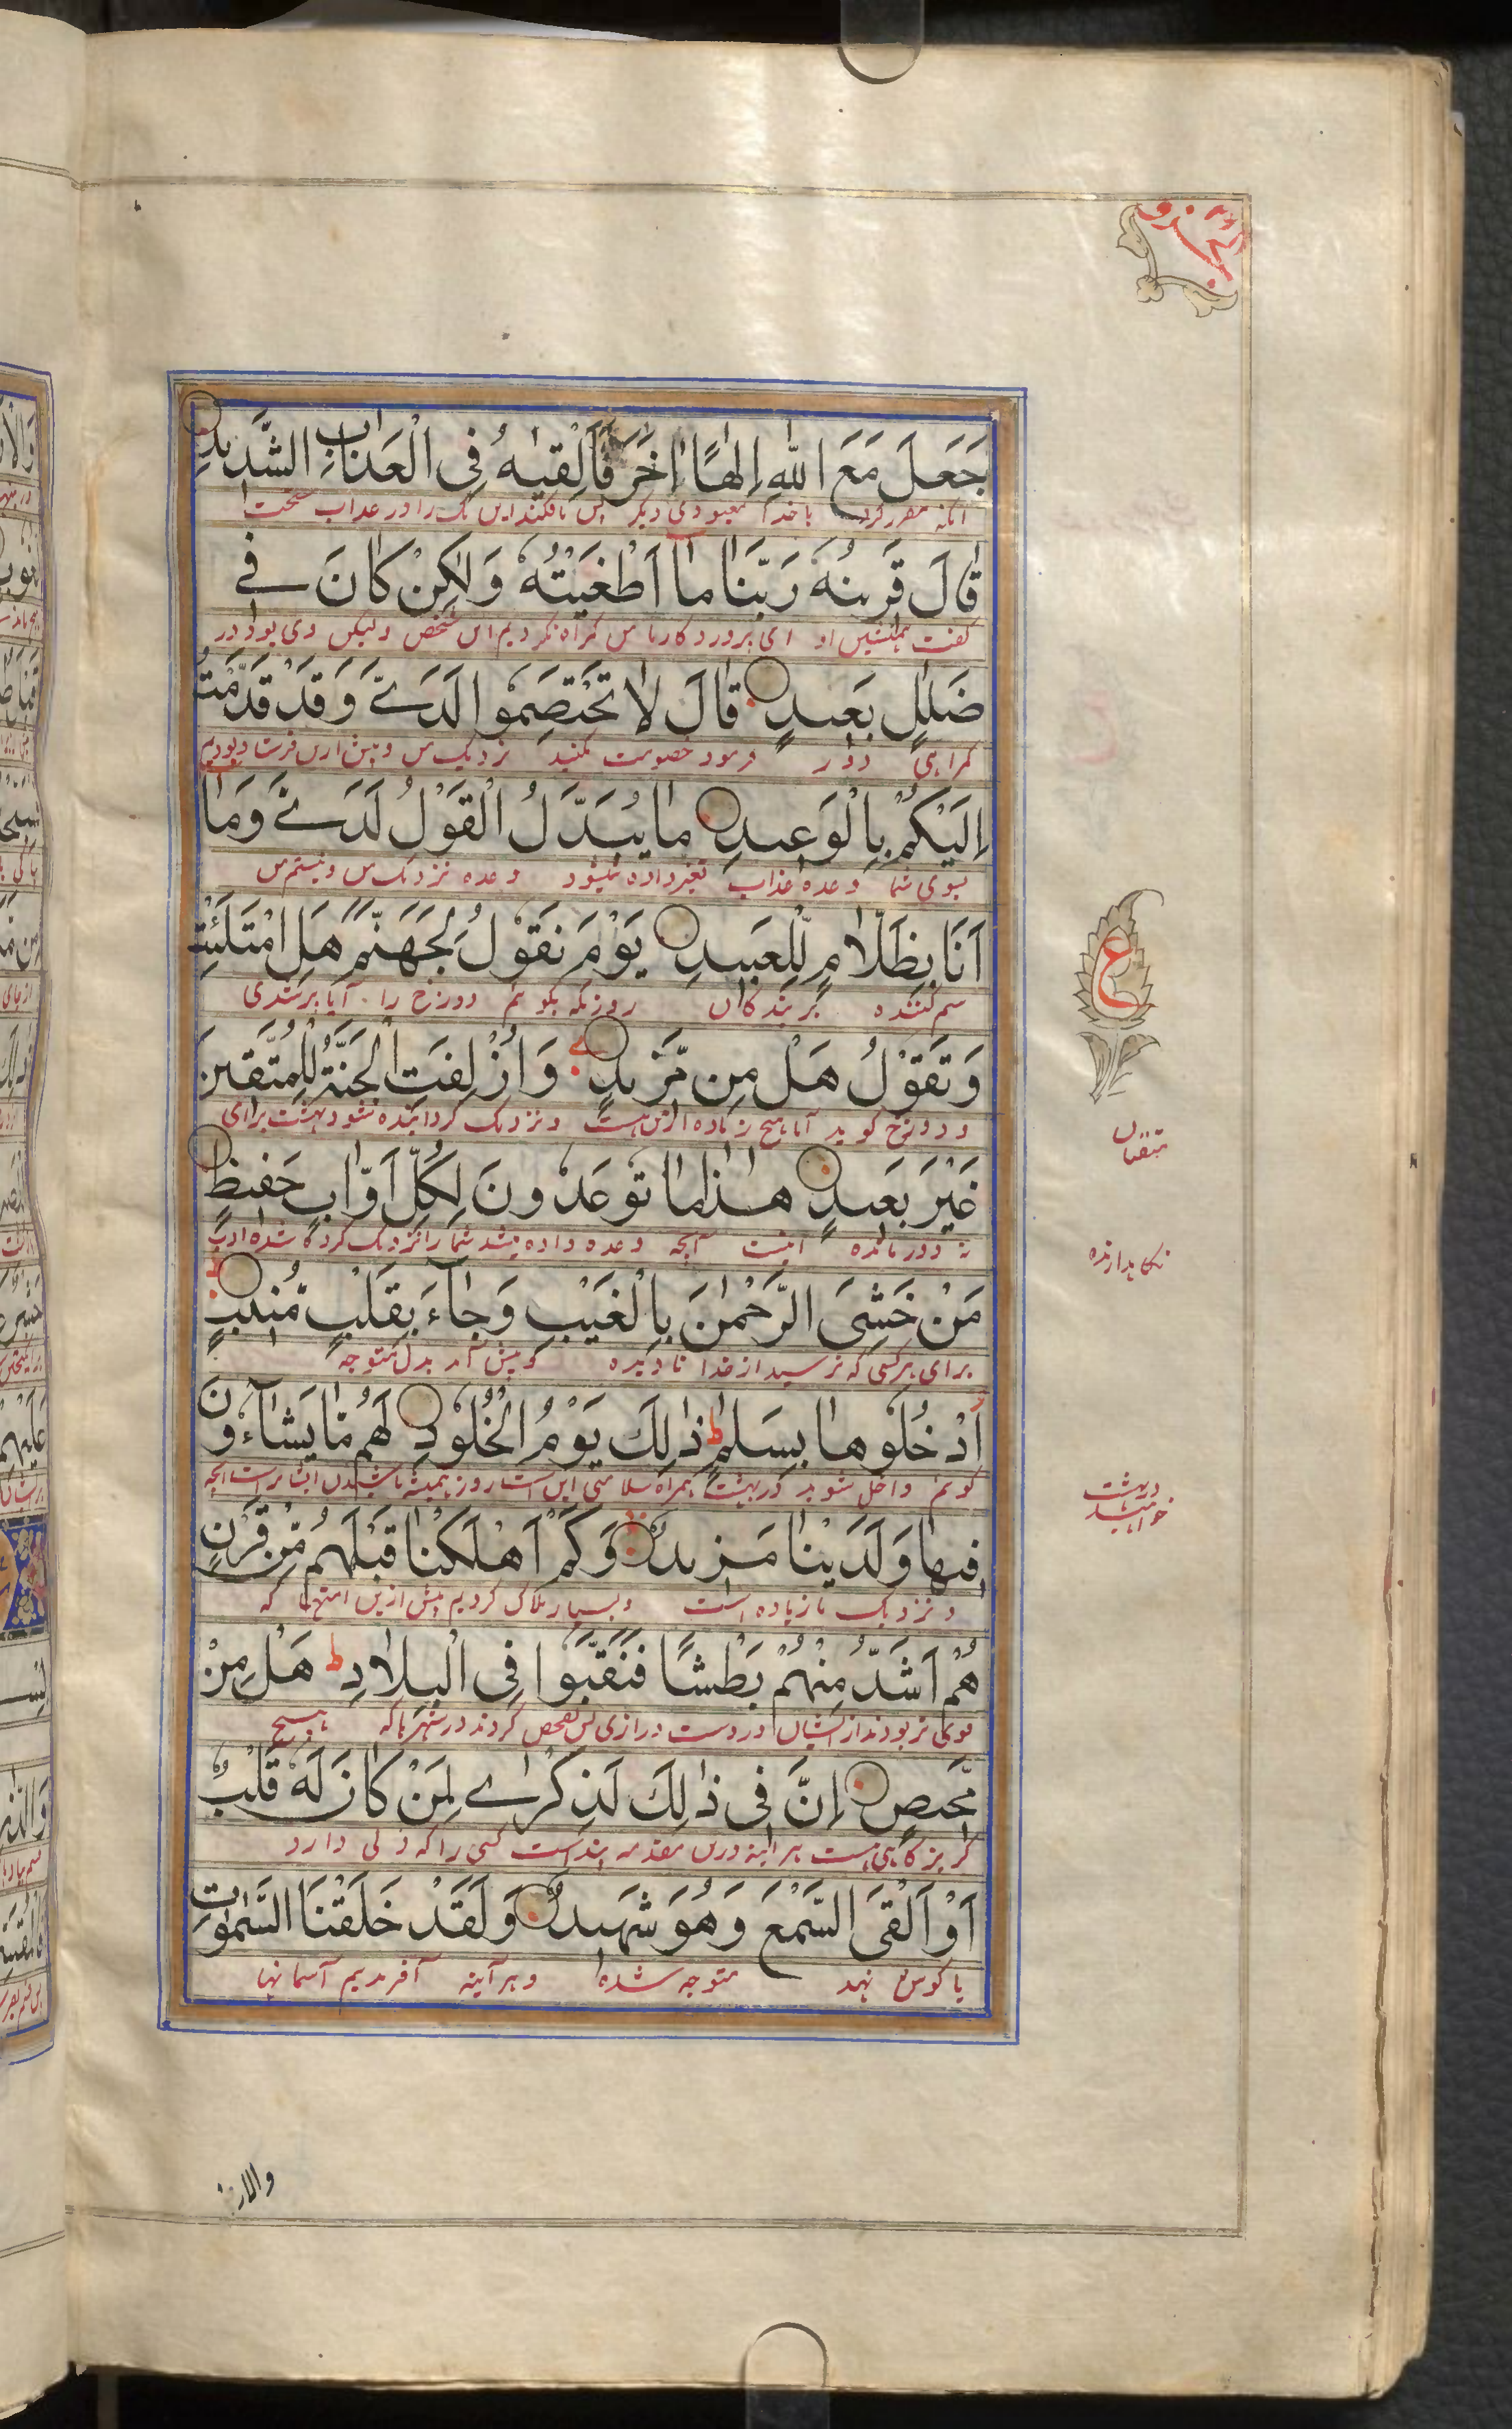 جَعَلَ مَعَ اللّٰهِ اِلٰهًا اٰخَرَ فَاَلْقِيٰهُ فِى الْعَذَابِ الشَّدِيْدِ
آنکه مقرر کرد با خدا معبودی دیگر پس بافکنید این یک را در عذاب سخت
قَالَ قَرِيْنُهٗ رَبَّنَا مَآ اَطْغَيْتُهٗ وَلٰكِنْ كَانَ فِى
گفت همنشین او ای پروردگار ما من گمراه نکردیم این شخص ولیکن وی بود در
ضَلٰلٍ بَعِيْدٍ قَالَ لَا تَخْتَصِمُوْا لَدَىَّ وَقَدْ قَدَّمْتُ
گمراهی دور فرمود خصومت مکنید نزدیک من و پیش ازین فرستاده بودیم
اِلَيْكُمْ بِالْوَعِيْدِ مَا يُبَدَّلُ الْقَوْلُ لَدَىَّ وَمَآ
بسوی شما وعده عذاب تغیر داده نمیشود وعده نزدیک من و نیستم من
اَنَا بِظَلَّامٍ لِّلْعَبِيْدِ يَوْمَ نَقُوْلُ لِجَهَنَّمَ هَلِ امْتَلَئْتِ
ستم کننده بر بندگان روزیکه بگوئیم دوزخ را آیا پر شدی
وَتَقُوْلُ هَلْ مِنْ مَّزِيْدٍ وَاُزْلِفَتِ الْجَنَّةُ لِلْمُتَّقِيْنَ
و دوزخ گوید آیا هیچ زیاده ازین هست و نزدیک گردانیده شود بهشت برای
متقیان
غَيْرَ بَعِيْدٍ هٰذَا مَا تُوْعَدُوْنَ لِكُلِّ اَوَّابٍ حَفِيْظٍ
نه دور مانده اینست آنچه وعده داده میشد شما را
نگاهدارنده
مَنْ خَشِىَ الرَّحْمٰنَ بِالْغَيْبِ وَجَآءَ بِقَلْبٍ مُّنِيْبٍ
برای هر کسی که ترسید از خدا نادیده و پیش آمد بدل متوجه
ادْخُلُوْهَا بِسَلٰمٍ ط ذٰلِكَ يَوْمُ الْخُلُوْدِ لَهُمْ مَّا يَشَآءُوْنَ
گوئیم داخل شوید در بهشت همراه سلامتی این است روز همیشه باشیدن ایشانراست آنچه
فِيْهَا وَلَدَيْنَا مَزِيْدٌ وَكَمْ اَهْلَكْنَا قَبْلَهُمْ مِّنْ قَرْنٍ
و نزدیک ما زیاده است و بسیار هلاک کردیم پیش ازین امتها که
هُمْ اَشَدُّ مِنْهُمْ بَطْشًا فَنَقَّبُوْا فِى الْبِلَادِ ط هَلْ مِنْ
قوی تر بودند از ایشان در دست درازی پس تفحص کردند در شهرها که هیچ
مَّحِيْصٍ اِنَّ فِى ذٰلِكَ لَذِكْرٰى لِمَنْ كَانَ لَهٗ قَلْبٌ
گریزگاهی هست هر آینه درین مقدمه پند است کسی را که دلی دارد
اَوْ اَلْقَى السَّمْعَ وَهُوَ شَهِيْدٌ وَلَقَدْ خَلَقْنَا السَّمٰوٰتِ
یا گوش نهد متوجه شده و هر آینه آفریدیم آسمانها
ع
والار